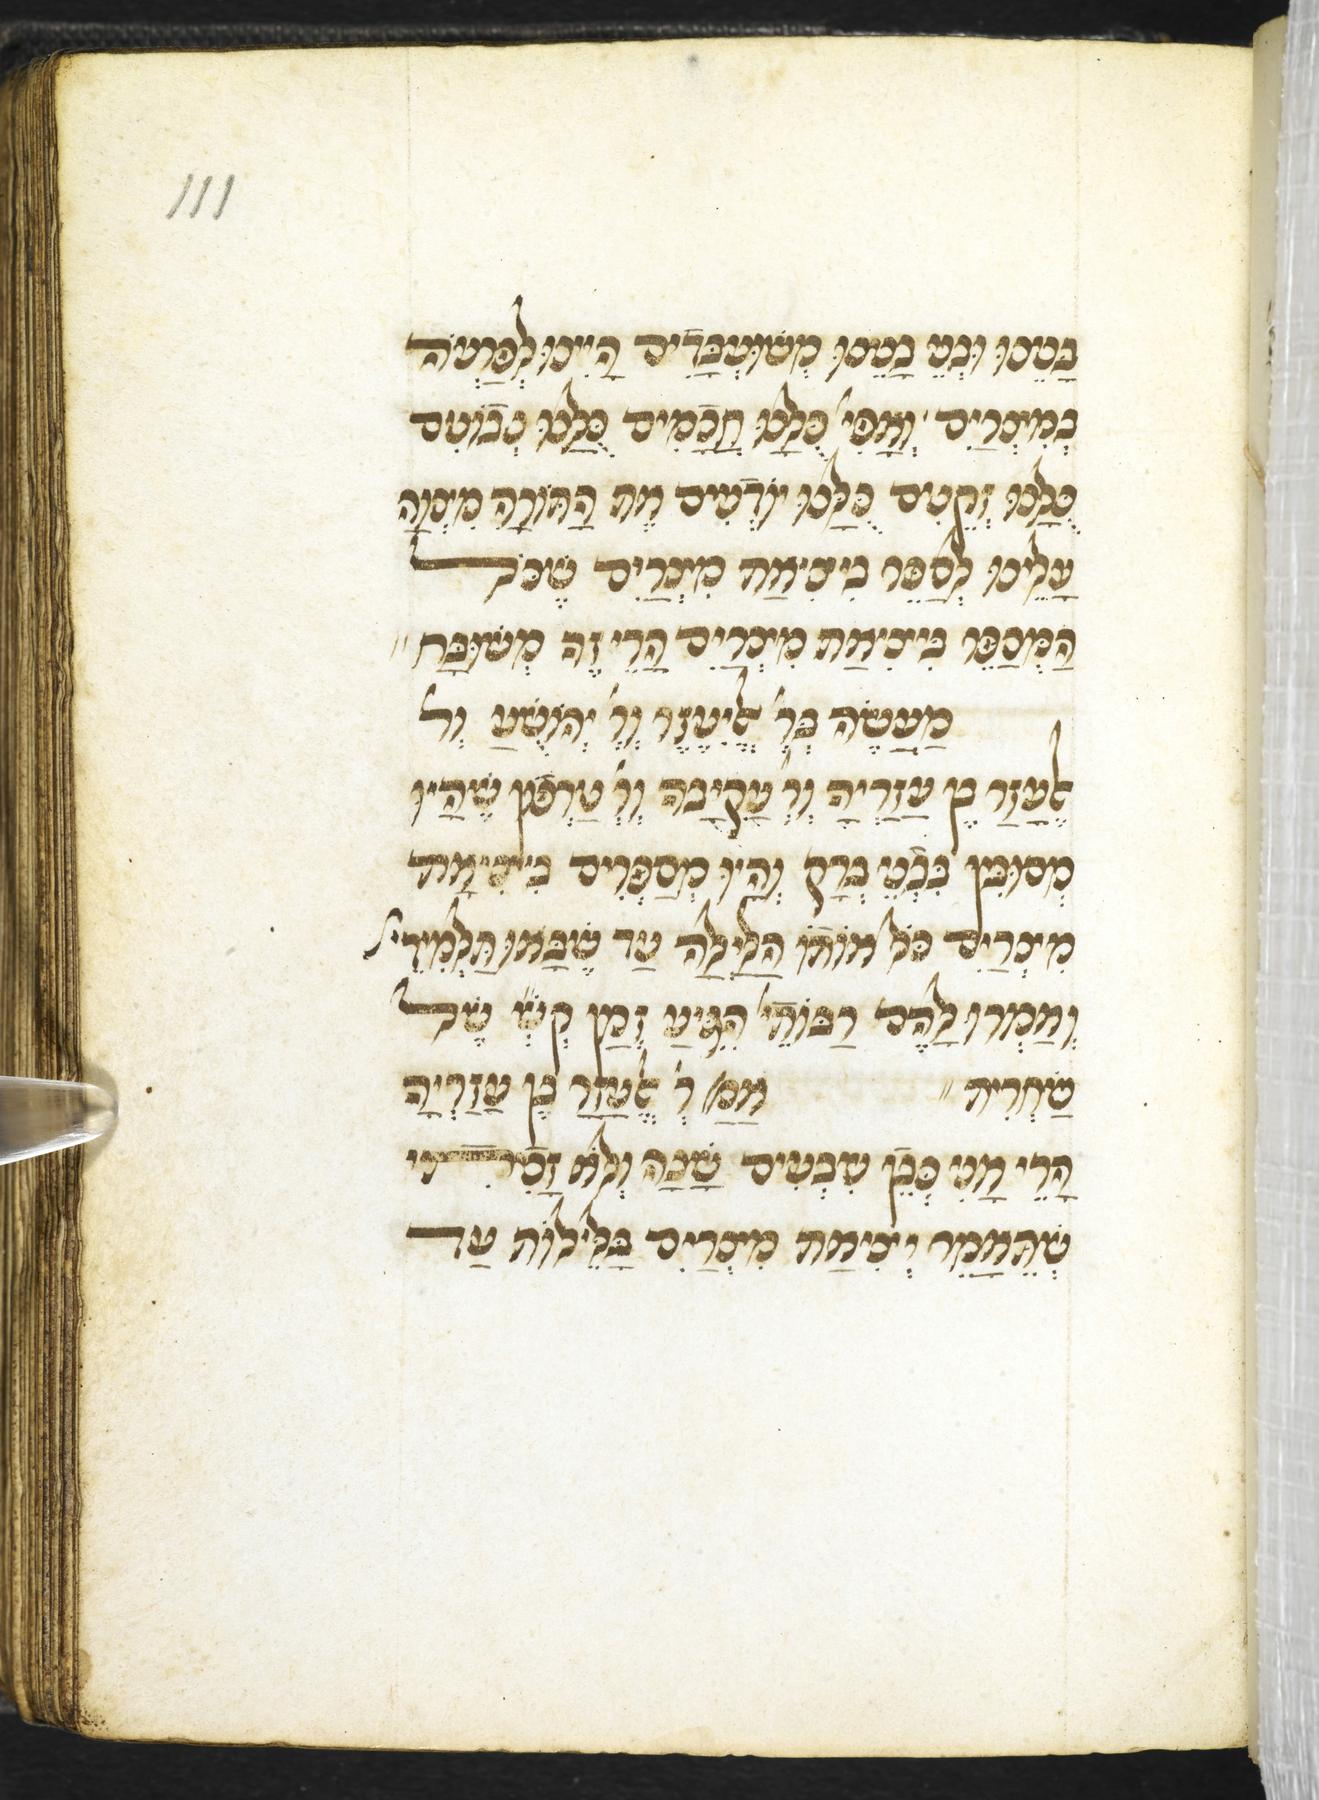 111
בָּנֵינוּ וּבְנֵי בָנֵינוּ מְשׁוּעְבָּדִים הָיִינוּ לְפַרְעֹה
בְּמִצְרַיִם וְאֲפִי' כֻּלָּנוּ חֲכָמִים כֻּלָּנוּ נְבוֹנִים
כֻּלָּנוּ זְקֵנִים כֻּלָּנוּ יוֹדְעִים אֶת הַתּוֹרָה מִצְוָה
עָלֵינוּ לְסַפֵּר בִּיצִיאַת מִצְרַיִם שֶׁכָּל
הַמְּסַפֵּר בִּיצִיאַת מִצְרַיִם הֲרֵי זֶה מְשׁוּבָּח
מַעֲשֶׂה בְּר' אֱלִיעֶזֶר וְר' יְהוֹשֻׁעַ וְר'
אֶלְעָזָר בֶּן עֲזַרְיָה וְר' עֲקִיבָה וְר' טַרְפוֹן שֶׁהָיוּ
מְסוּבִּין בִּבְנֵי בְרַק וְהָיוּ מְסַפְּרִים בִּיצִיאַת
מִצְרַיִם כָּל אוֹתוֹ הַלַּיְלָה עַד שֶׁבָּאוּ תַּלְמִידֵי'
וְאָמְרוּ לָהֶם רַבּוֹתֵי' הִגִּיעַ זְמַן קְ"שׁ שֶׁל
שַׁחֲרִית אָמַ' ר' אֶלְעָזָר בֶּן עֲזַרְיָה
הֲרֵי אֲנִי כְּבֶן שִׁבְעִים שָׁנָה וְלֹא זָכִיתִי
שֶׁתֵּאָמֵר יְצִיאַת מִצְרַיִם בַּלֵּילוֹת עַד